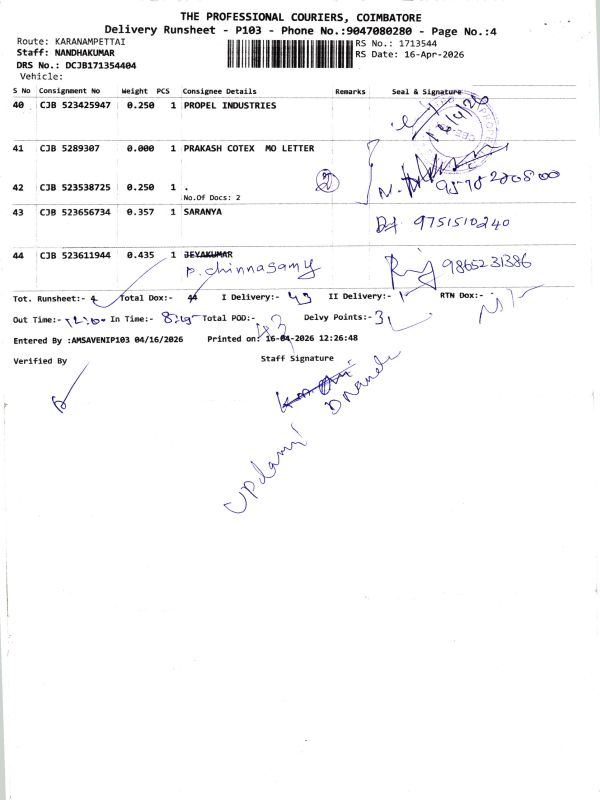 THE PROFESSIONAL COURIERS, COIMBATORE
Delivery Runsheet - P103 - Phone No.:9047080280 - Page No.:4
Route: KARANAMPETTAI
Staff: NANDHAKUMAR
DRS No.: DCJB171354404
Vehicle:
RS No.: 1713544
RS Date: 16-Apr-2026
S No Consignment No Weight PCS Consignee Details Remarks Seal & Signature
40 CJB 523425947 0.250 1 PROPEL INDUSTRIES
16/4/26
41 CJB 5289307 0.000 1 PRAKASH COTEX MO LETTER
42 CJB 523538725 0.250 1 .
No.Of Docs: 2
2
43 CJB 523656734 0.357 1 SARANYA
9751510240
44 CJB 523611944 0.435 1 JEYAKUMAR
P. Chinnasamy
9865231386
Tot. Runsheet:- 4 Total Dox:- 44 I Delivery:- 43 II Delivery:- 1 RTN Dox:-
Out Time:- In Time:- Total POD:- 43 Delvy Points:-
Entered By :AMSAVENIP103 04/16/2026 Printed on: 16-04-2026 12:26:48
Verified By Staff Signature